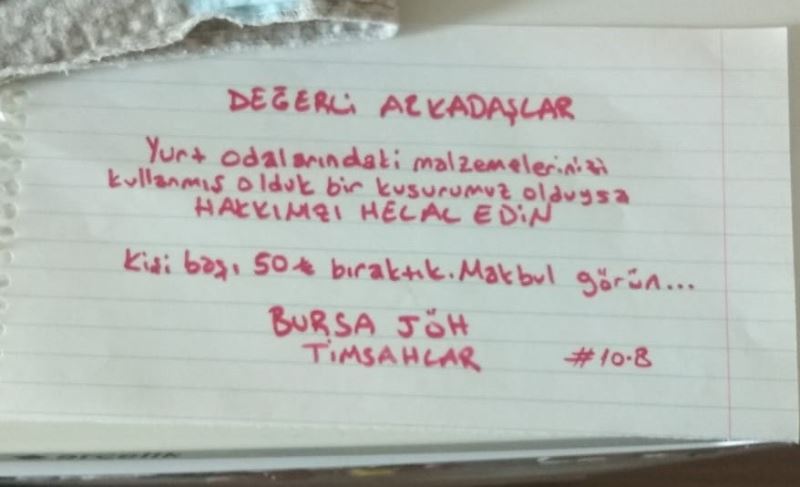 DEĞERLİ ARKADAŞLAR
Yurt odalarındaki malzemelerinizi
kullanmış olduk bir kusurumuz olduysa
HAKKIMIZI HELAL EDİN
Kişi başı 50 ₺ bıraktık. Makbul görün...
BURSA JÖH
TİMSAHLAR #10.B
arçelik